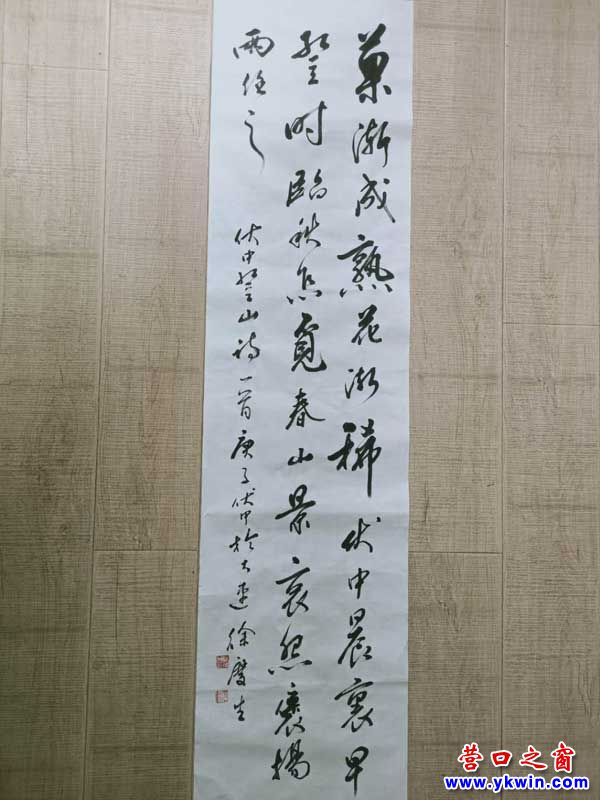 菓渐成熟花渐稀伏中晨裏早
登时臨秋怎覓春山景哀怨褒揚
兩任之
伏中登山诗一首庚子伏中於大连徐慶生
营口之窗
www.ykwin.com